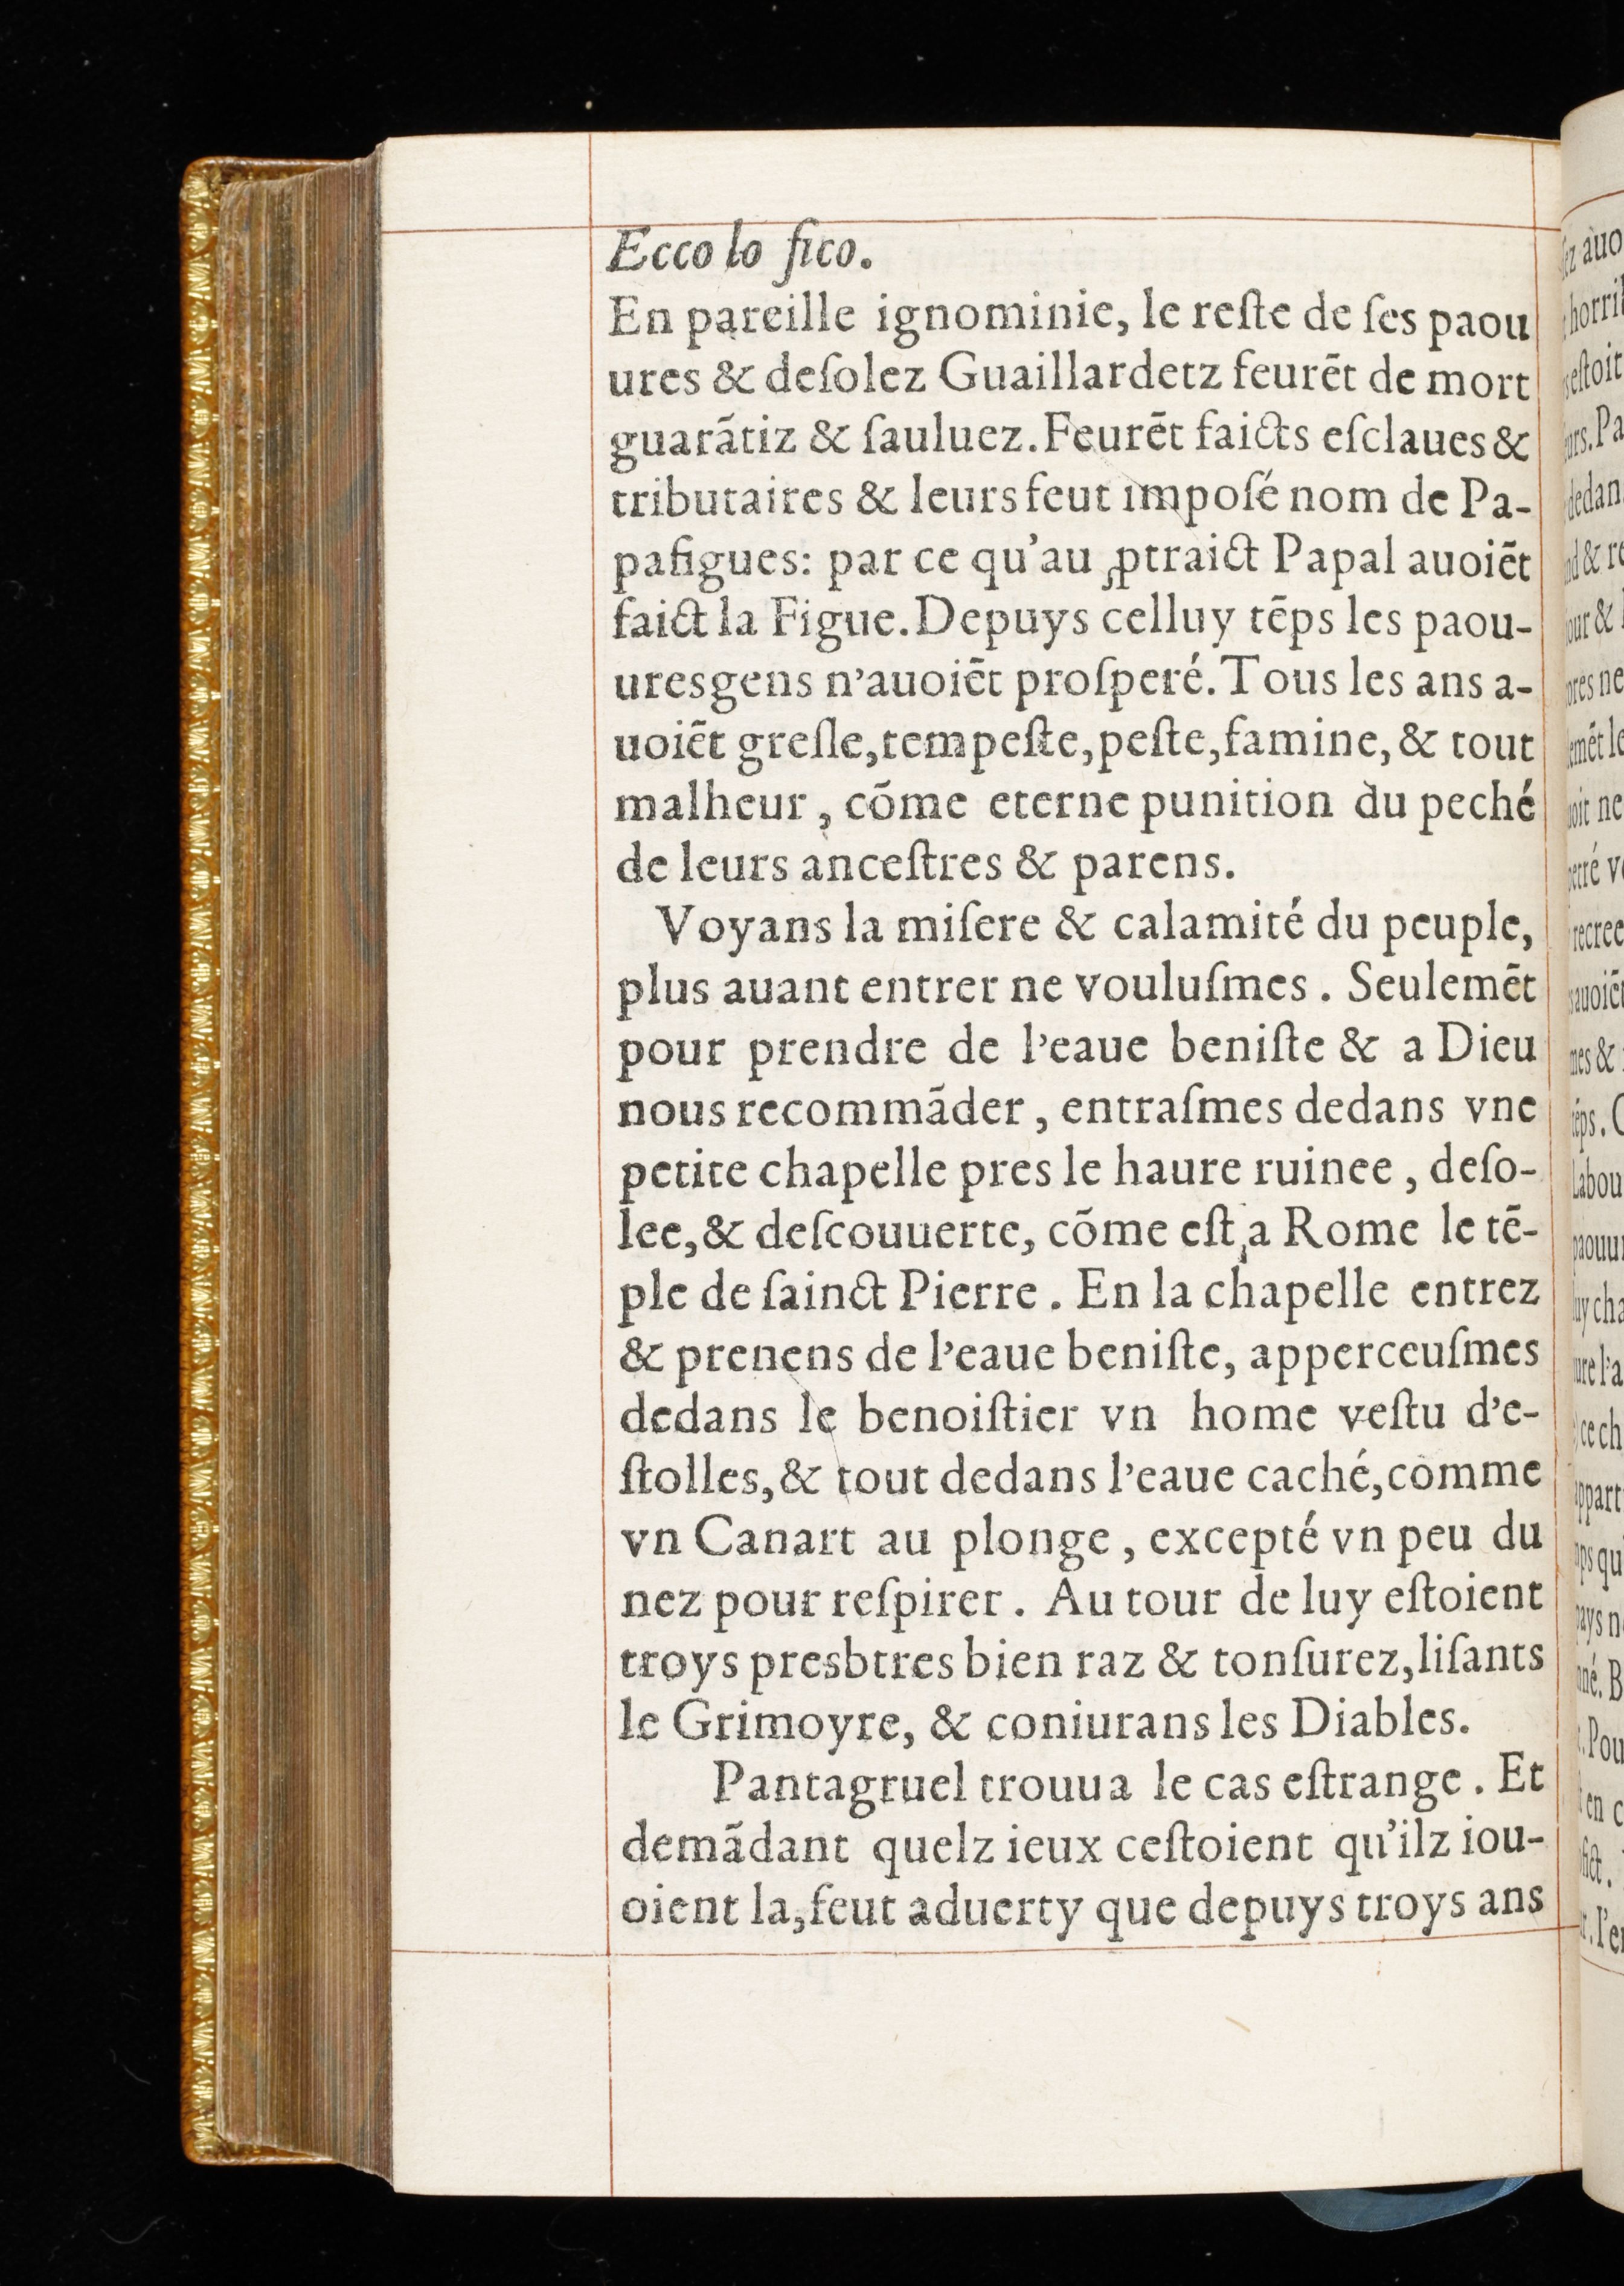 Ecco lo fico.
En pareille ignominie, le reſte de ſes paou
ures & deſolez Guaillardetz feurēt de mort
guarātiz & ſauluez. Feurēt faicts eſclaues &
tributaires & leurs feut impoſé nom de Pa-
pafigues: par ce qu'au ꝓtraict Papal auoiēt
faict la Figue. Depuys celluy tēps les paou-
uresgens n'auoiēt proſperé. Tous les ans a-
uoiēt greſle, tempeſte, peſte, famine, & tout
malheur, cōme eterne punition du peché
de leurs anceſtres & parens.
Voyans la miſere & calamité du peuple,
plus auant entrer ne vouluſmes. Seulemēt
pour prendre de l'eaue beniſte & a Dieu
nous recommāder, entraſmes dedans vne
petite chapelle pres le haure ruinee, deſo-
lee, & deſcouuerte, cōme eſt a Rome le tē-
ple de ſainct Pierre. En la chapelle entrez
& prenens de l'eaue beniſte, apperceuſmes
dedans le benoiſtier vn home veſtu d'e-
ſtolles, & tout dedans l'eaue caché, comme
vn Canart au plonge, excepté vn peu du
nez pour reſpirer. Au tour de luy eſtoient
troys presbtres bien raz & tonſurez, liſants
le Grimoyre, & coniurans les Diables.
Pantagruel trouua le cas eſtrange. Et
demādant quelz ieux ceſtoient qu'ilz iou-
oient la, feut aduerty que depuys troys ans